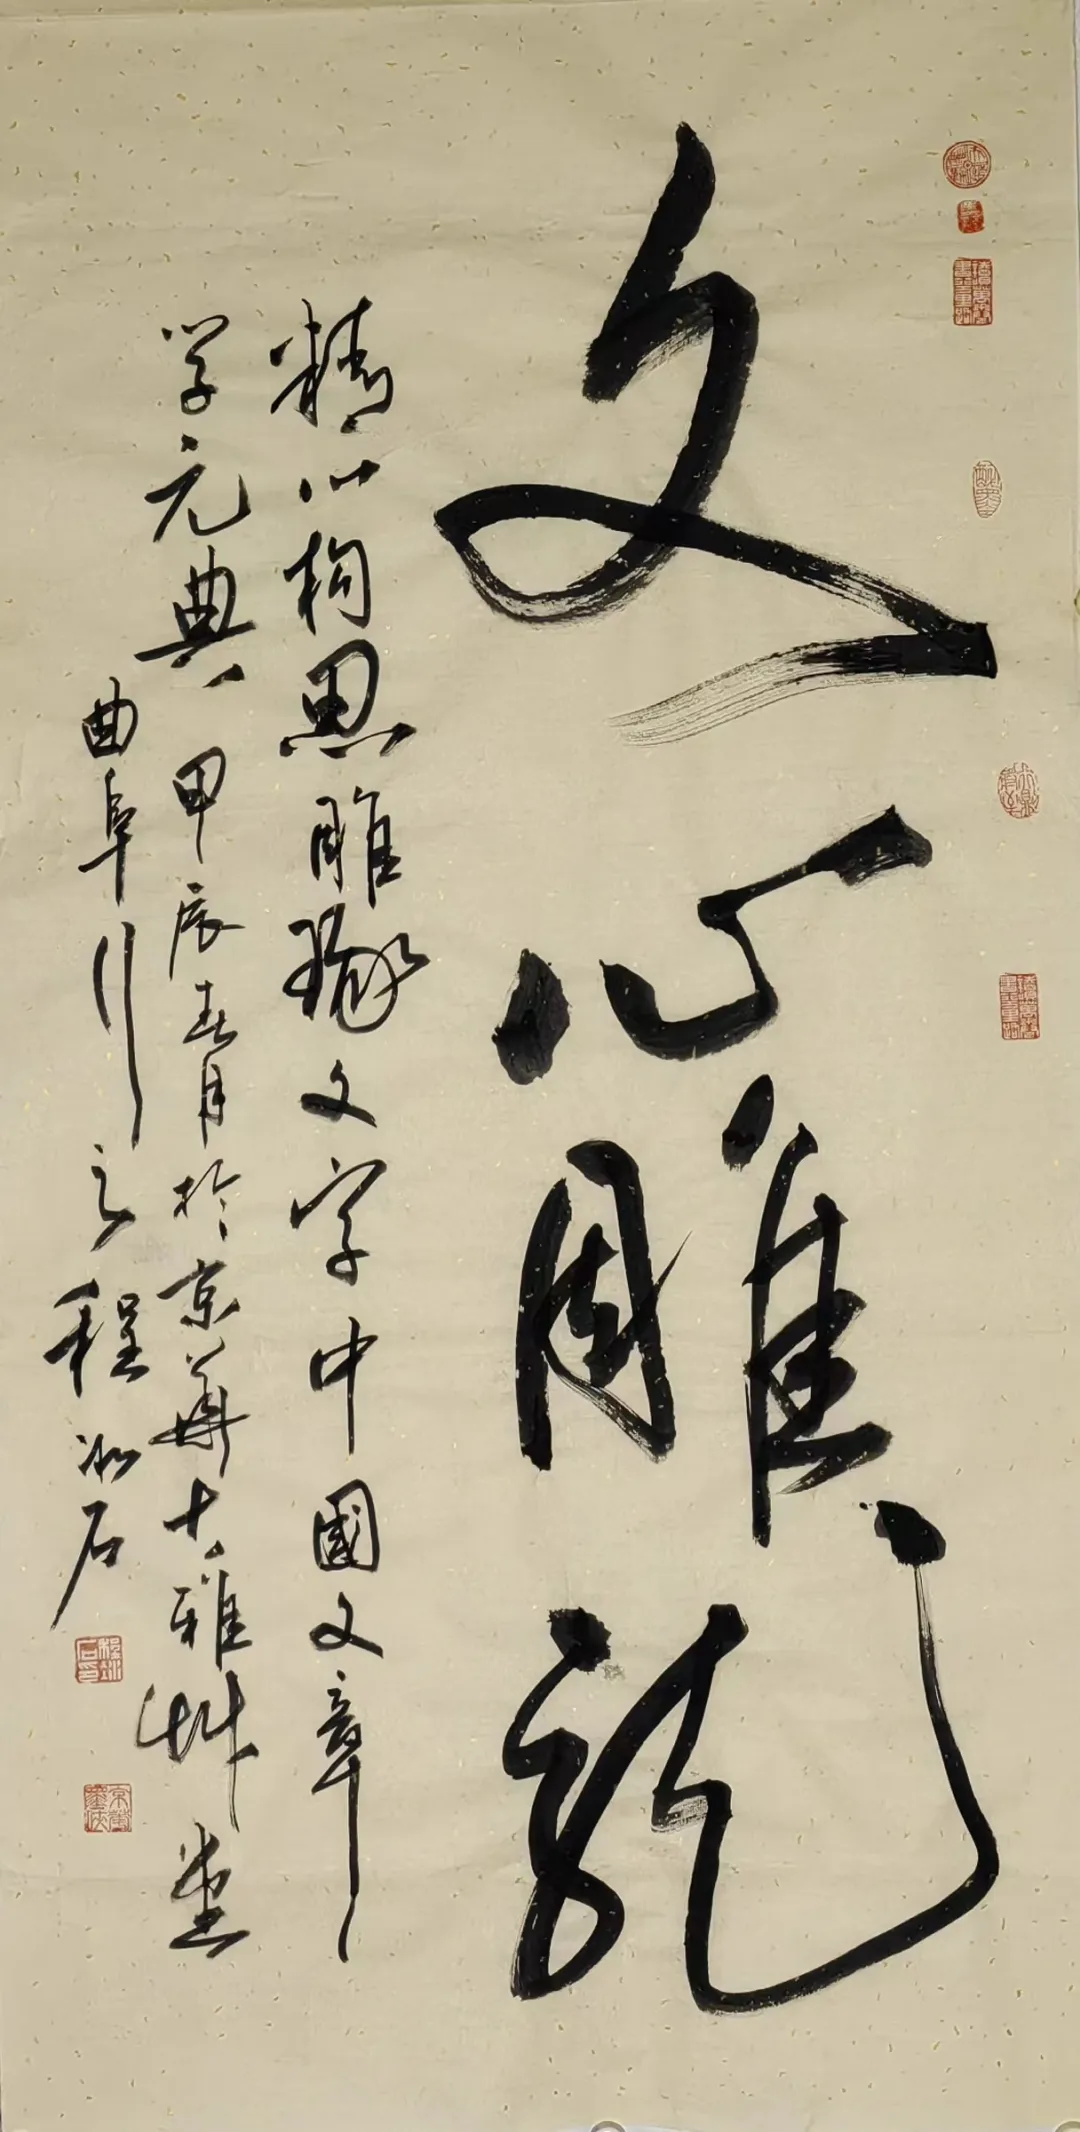 文心雕龍
精心构思雕琢文字中國文章
学元典甲辰春月於京華大雅艸堂
曲阜行之程冰石